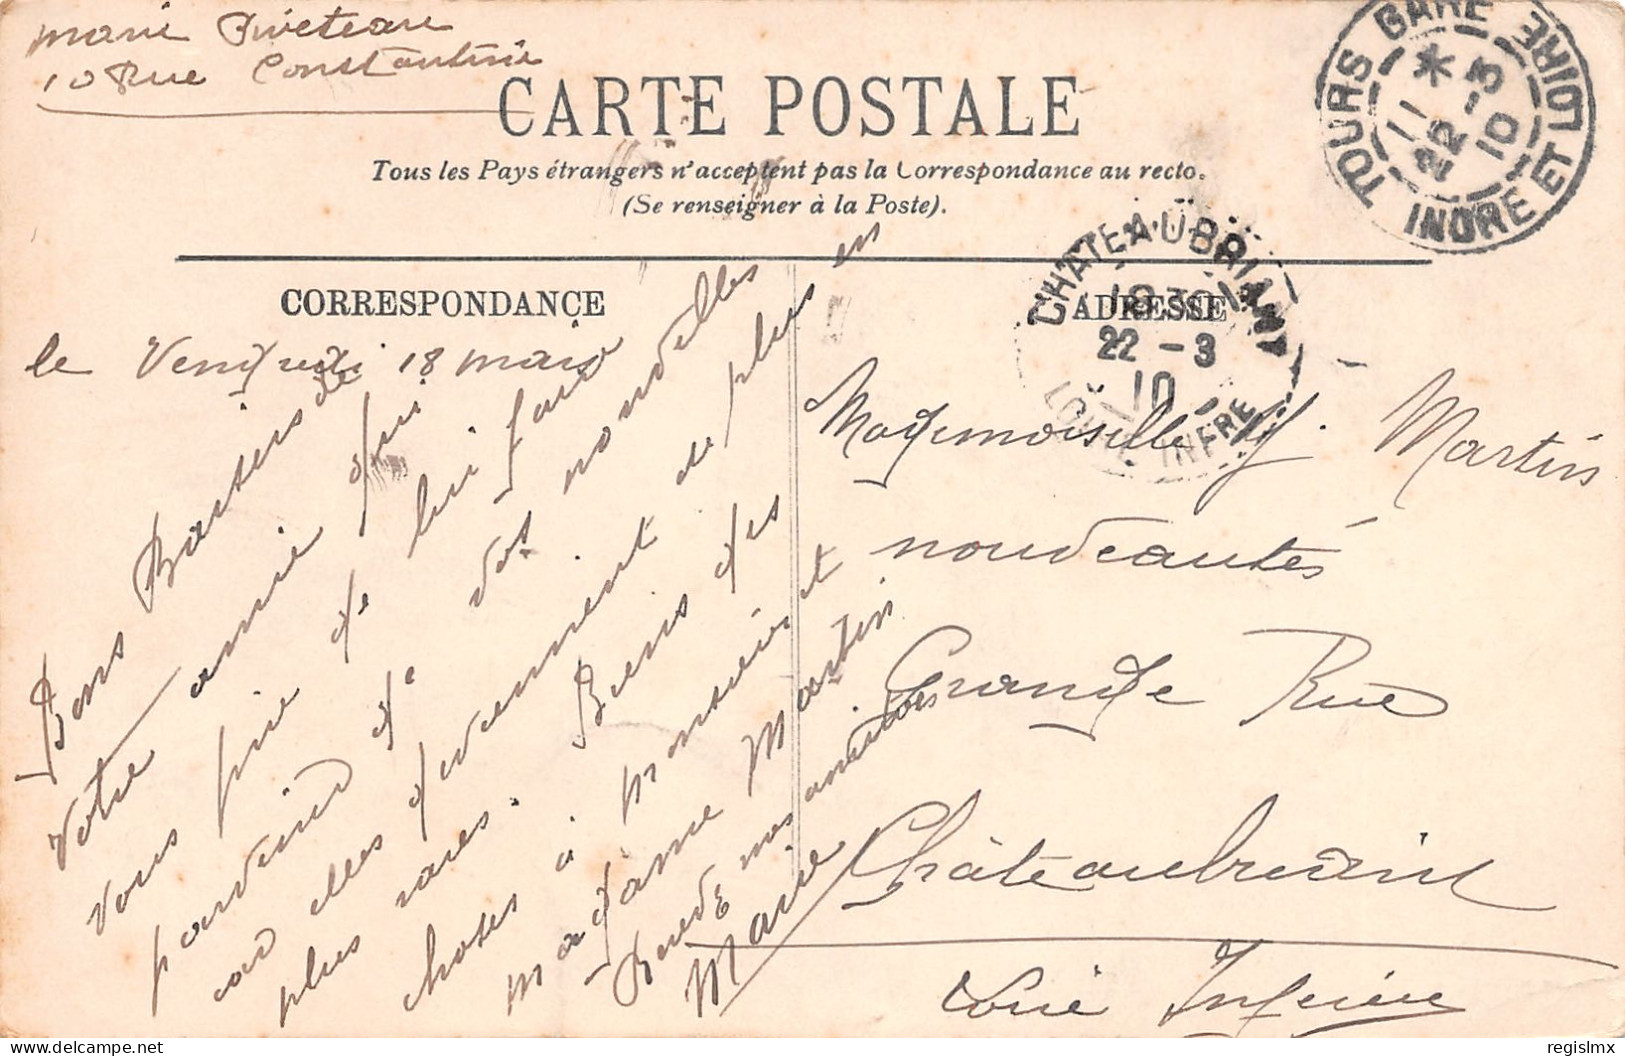 Marie Riveteau
10 Rue Constantine
CARTE POSTALE
Tous les Pays étrangers n'acceptent pas la Correspondance au recto.
(Se renseigner à la Poste).
TOURS GARE
INDRE ET LOIRE
11 *
22 - 3
10
CHATEAUBRIANT
22 - 3
10
LOIRE INFRE
CORRESPONDANCE
ADRESSE
le Vendredi 18 mars
Bons Baisers de
votre amie qui
vous prie de lui faire
parvenir de vos nouvelles
car elles deviennent de plus en
plus rares. Biens des
choses à Monsieur et
Madame Martin
Marie
Mademoiselle Martin
nouveautés
Grande Rue
Châteaubriant
Loire Inférieure
regislmx